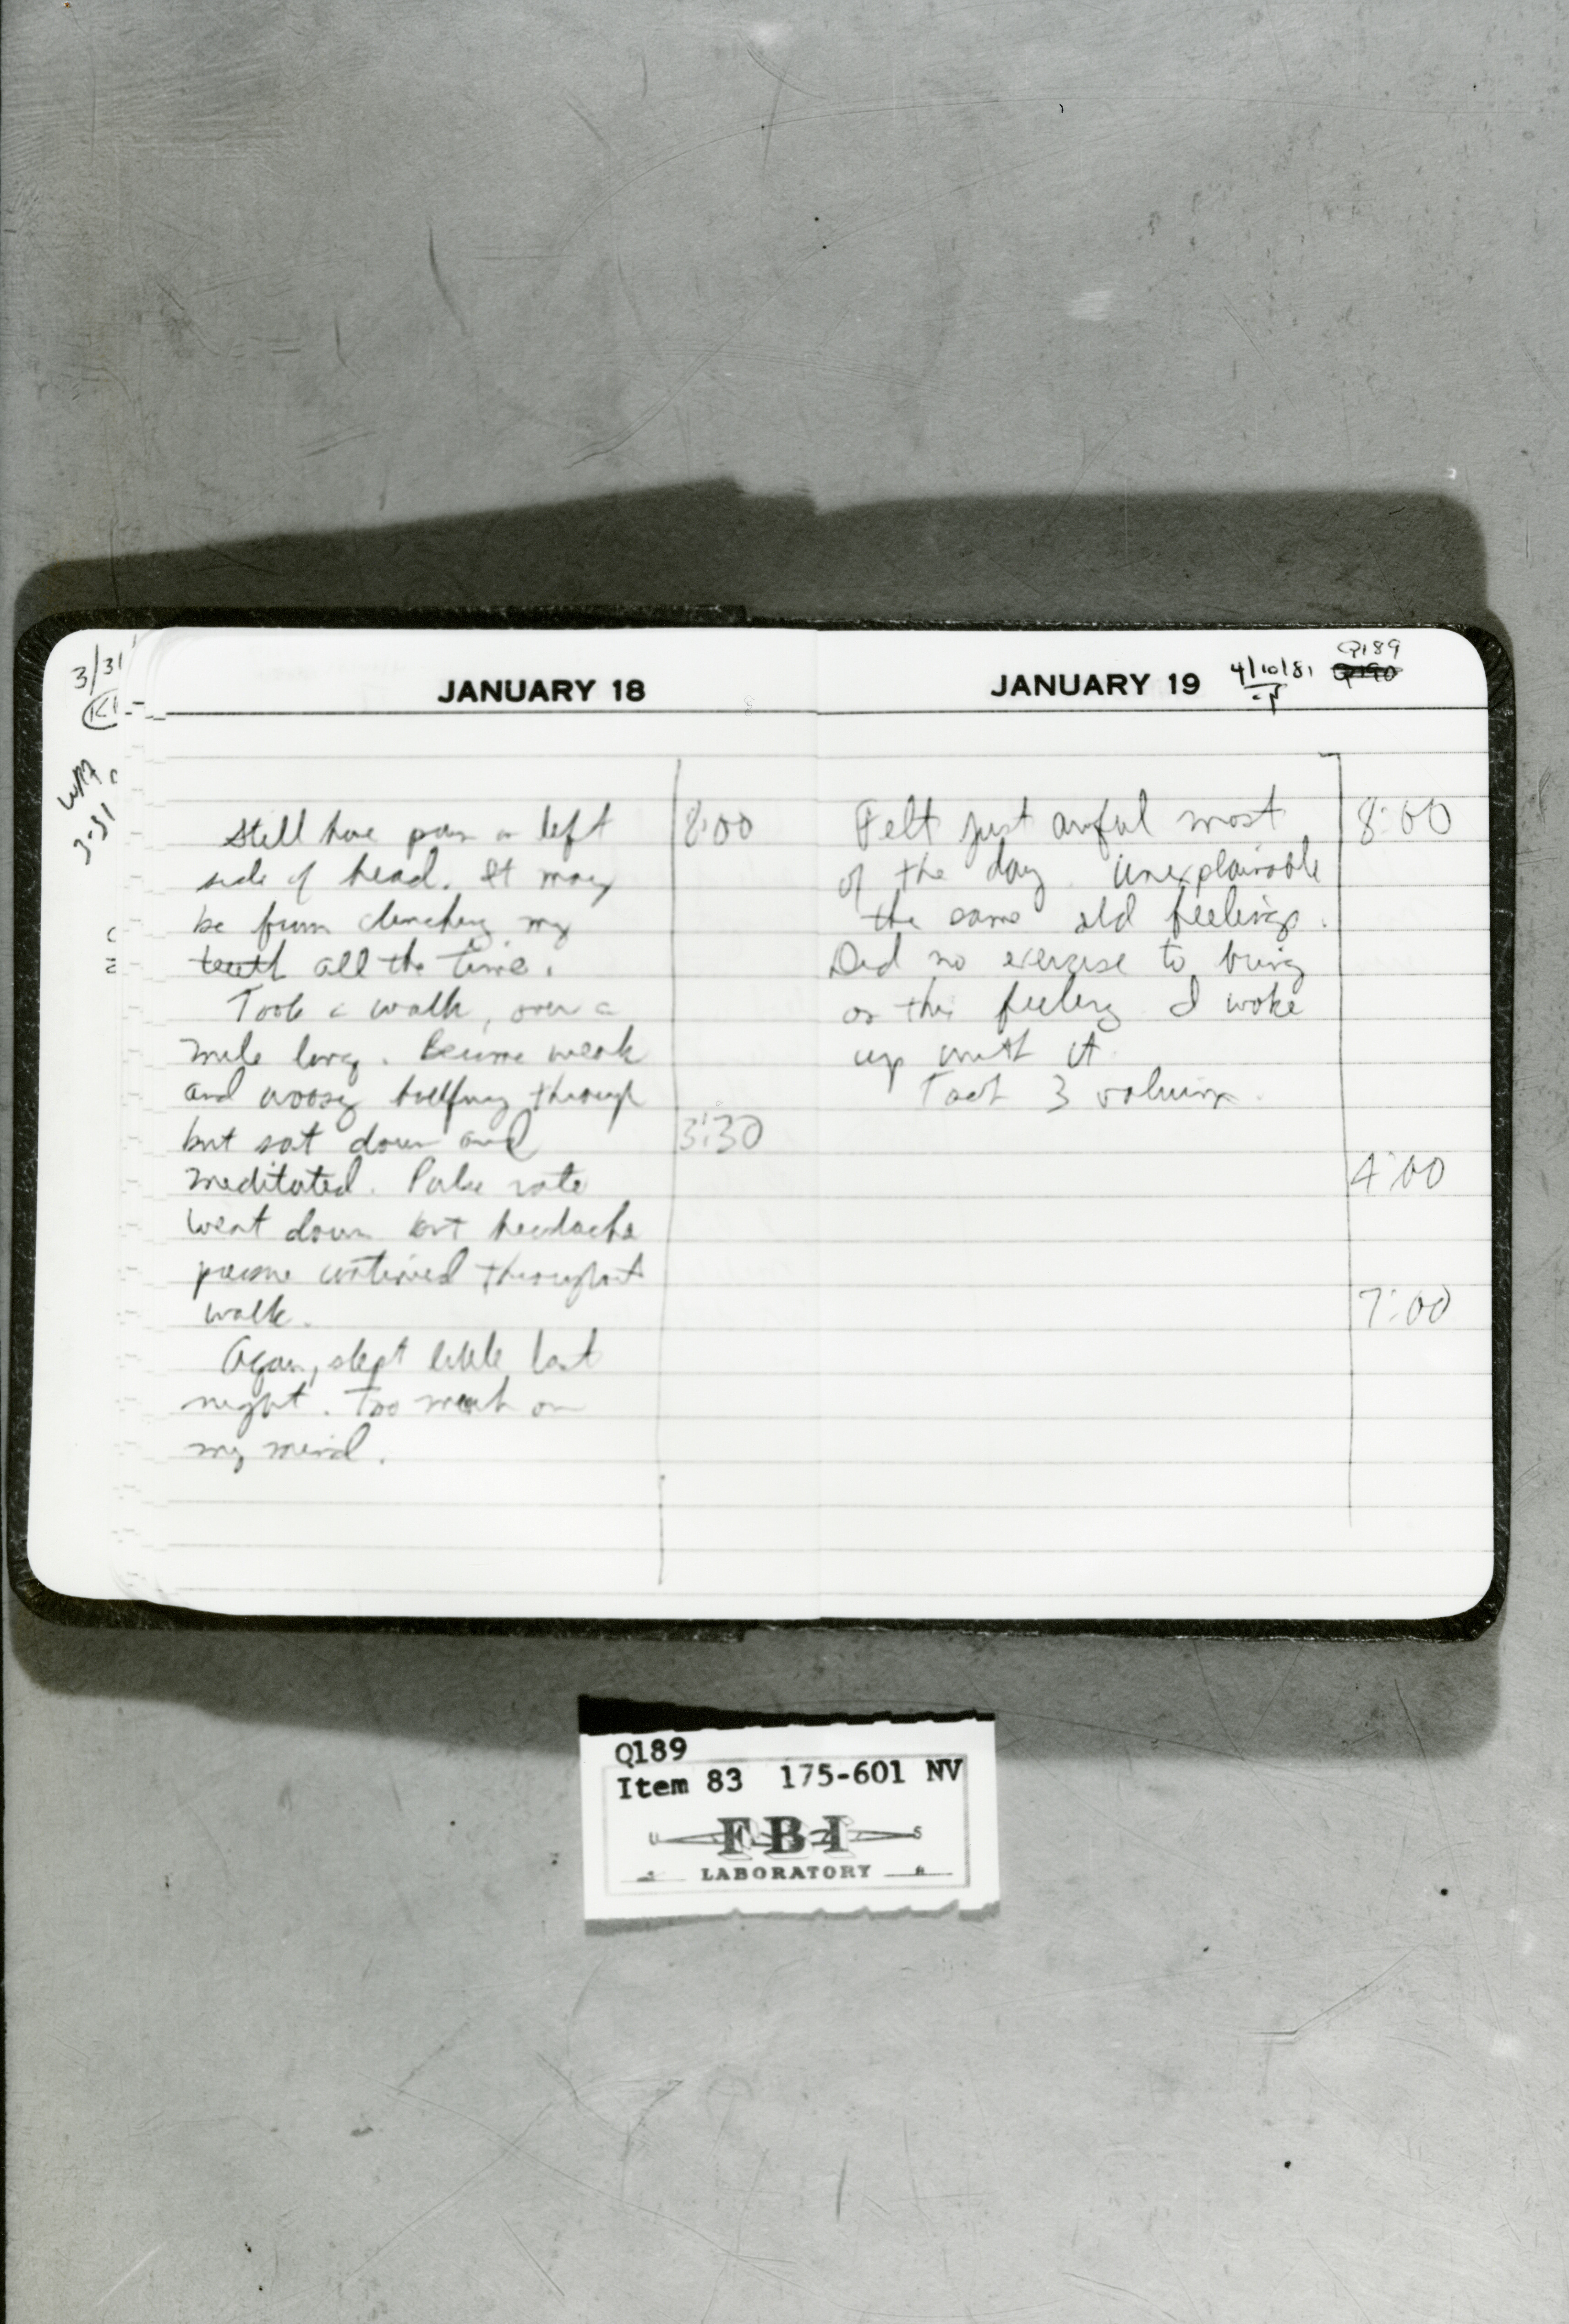 3/31
JANUARY 18
Still have pain on left
side of head. It may
be from clenching my
teeth all the time.
Took a walk, over a
mile long. Became weak
and woosy halfway through
but sat down and
meditated. Pulse rate
went down but headache
continued throughout
walk.
Again, slept little last
night. Too much on
my mind.
8:00
3:30
JANUARY 19
4/10/81
Q189
Q190
Felt just awful most
of the day. Unexplainable
the same old feelings.
Did no exercise to bring
on this feeling I woke
up with it
Took 3 valiums.
8:00
4:00
7:00
3-31
Q189
Item 83 175-601 NV
U FBI S
LABORATORY